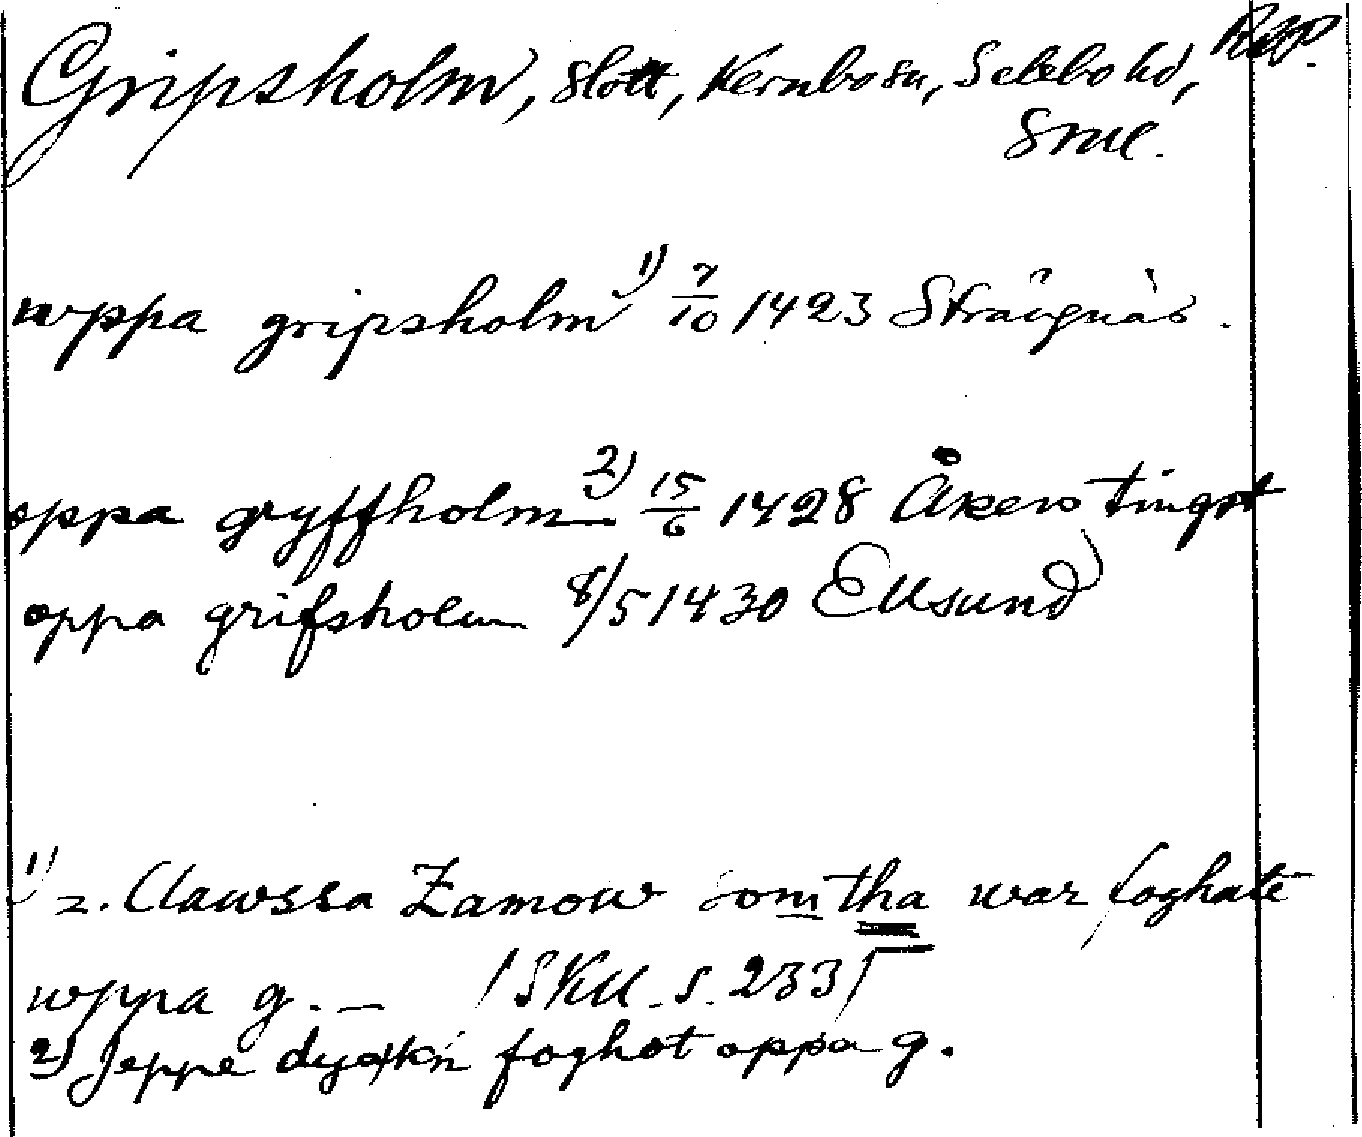 Gripsholm, slott, Kernbo sn, Selebo hd, Rasp.
Sml.
wppa gripsholm 1) 7/10 1423 Strängnäs.
oppa gryffholm 2) 15/6 1428 Åkers tingst
oppa grifsholm 8/5 1430 Ellsund
1) z. Clawssa Zamow som tha war foghate
wppa g. — /SKU. s. 233/
2) Jeppe dyækn foghot oppa g.